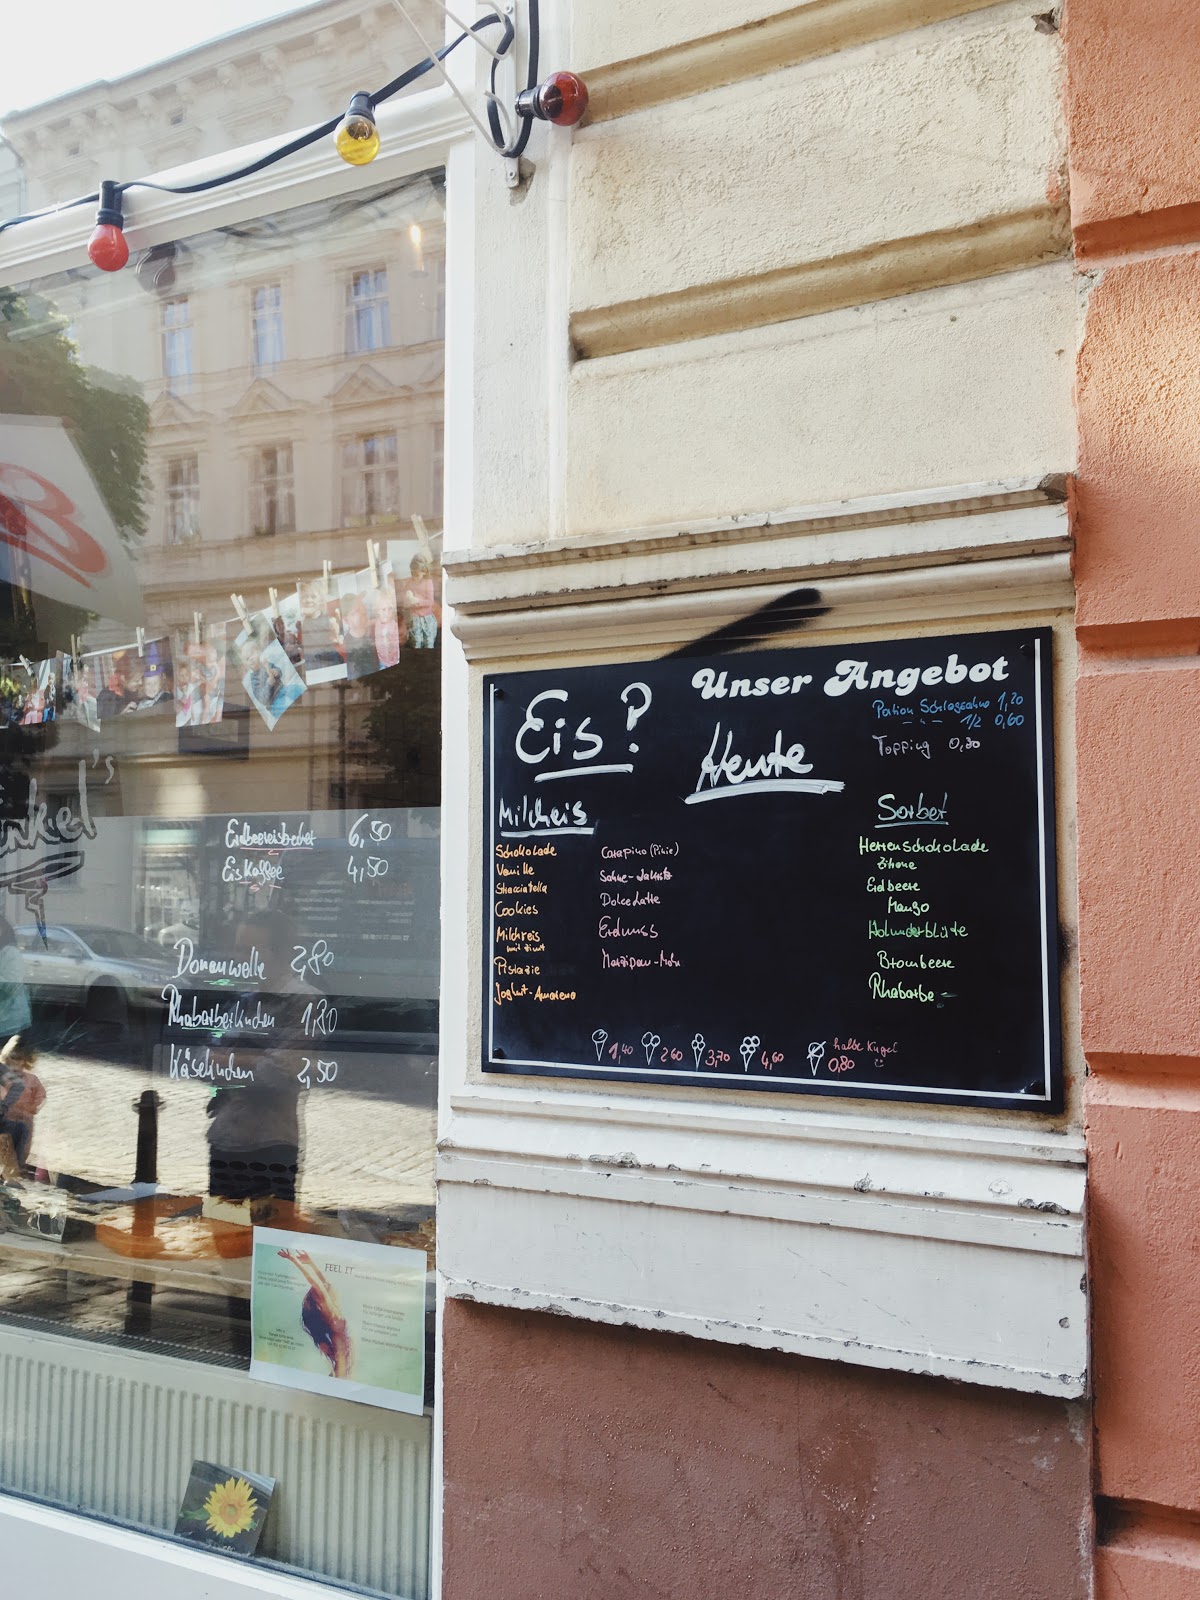 Unser Angebot
Eis?
Heute
Portion Schlagsahne 1,20
- " - 1/2 0,60
Topping 0,30
Milcheis
Schokolade
Vanille
Stracciatella
Cookies
Milchreis
mit Zimt
Pistazie
Joghurt-Amarena
Carapino (Pinie)
Sahne-Lakritz
Dolce Latte
Erdnuss
Marzipan-Mohn
Sorbet
Herrenschokolade
Zitrone
Erdbeere
Mango
Holunderblüte
Brombeere
Rhabarber
1,40 2,60 3,70 4,60 halbe Kugel
0,80
B
nkel's
Erdbeereisbecher 6,50
Eiskaffee 4,50
Donauwelle 2,80
Rhabarberkuchen 1,80
Käsekuchen 2,50
FEEL IT